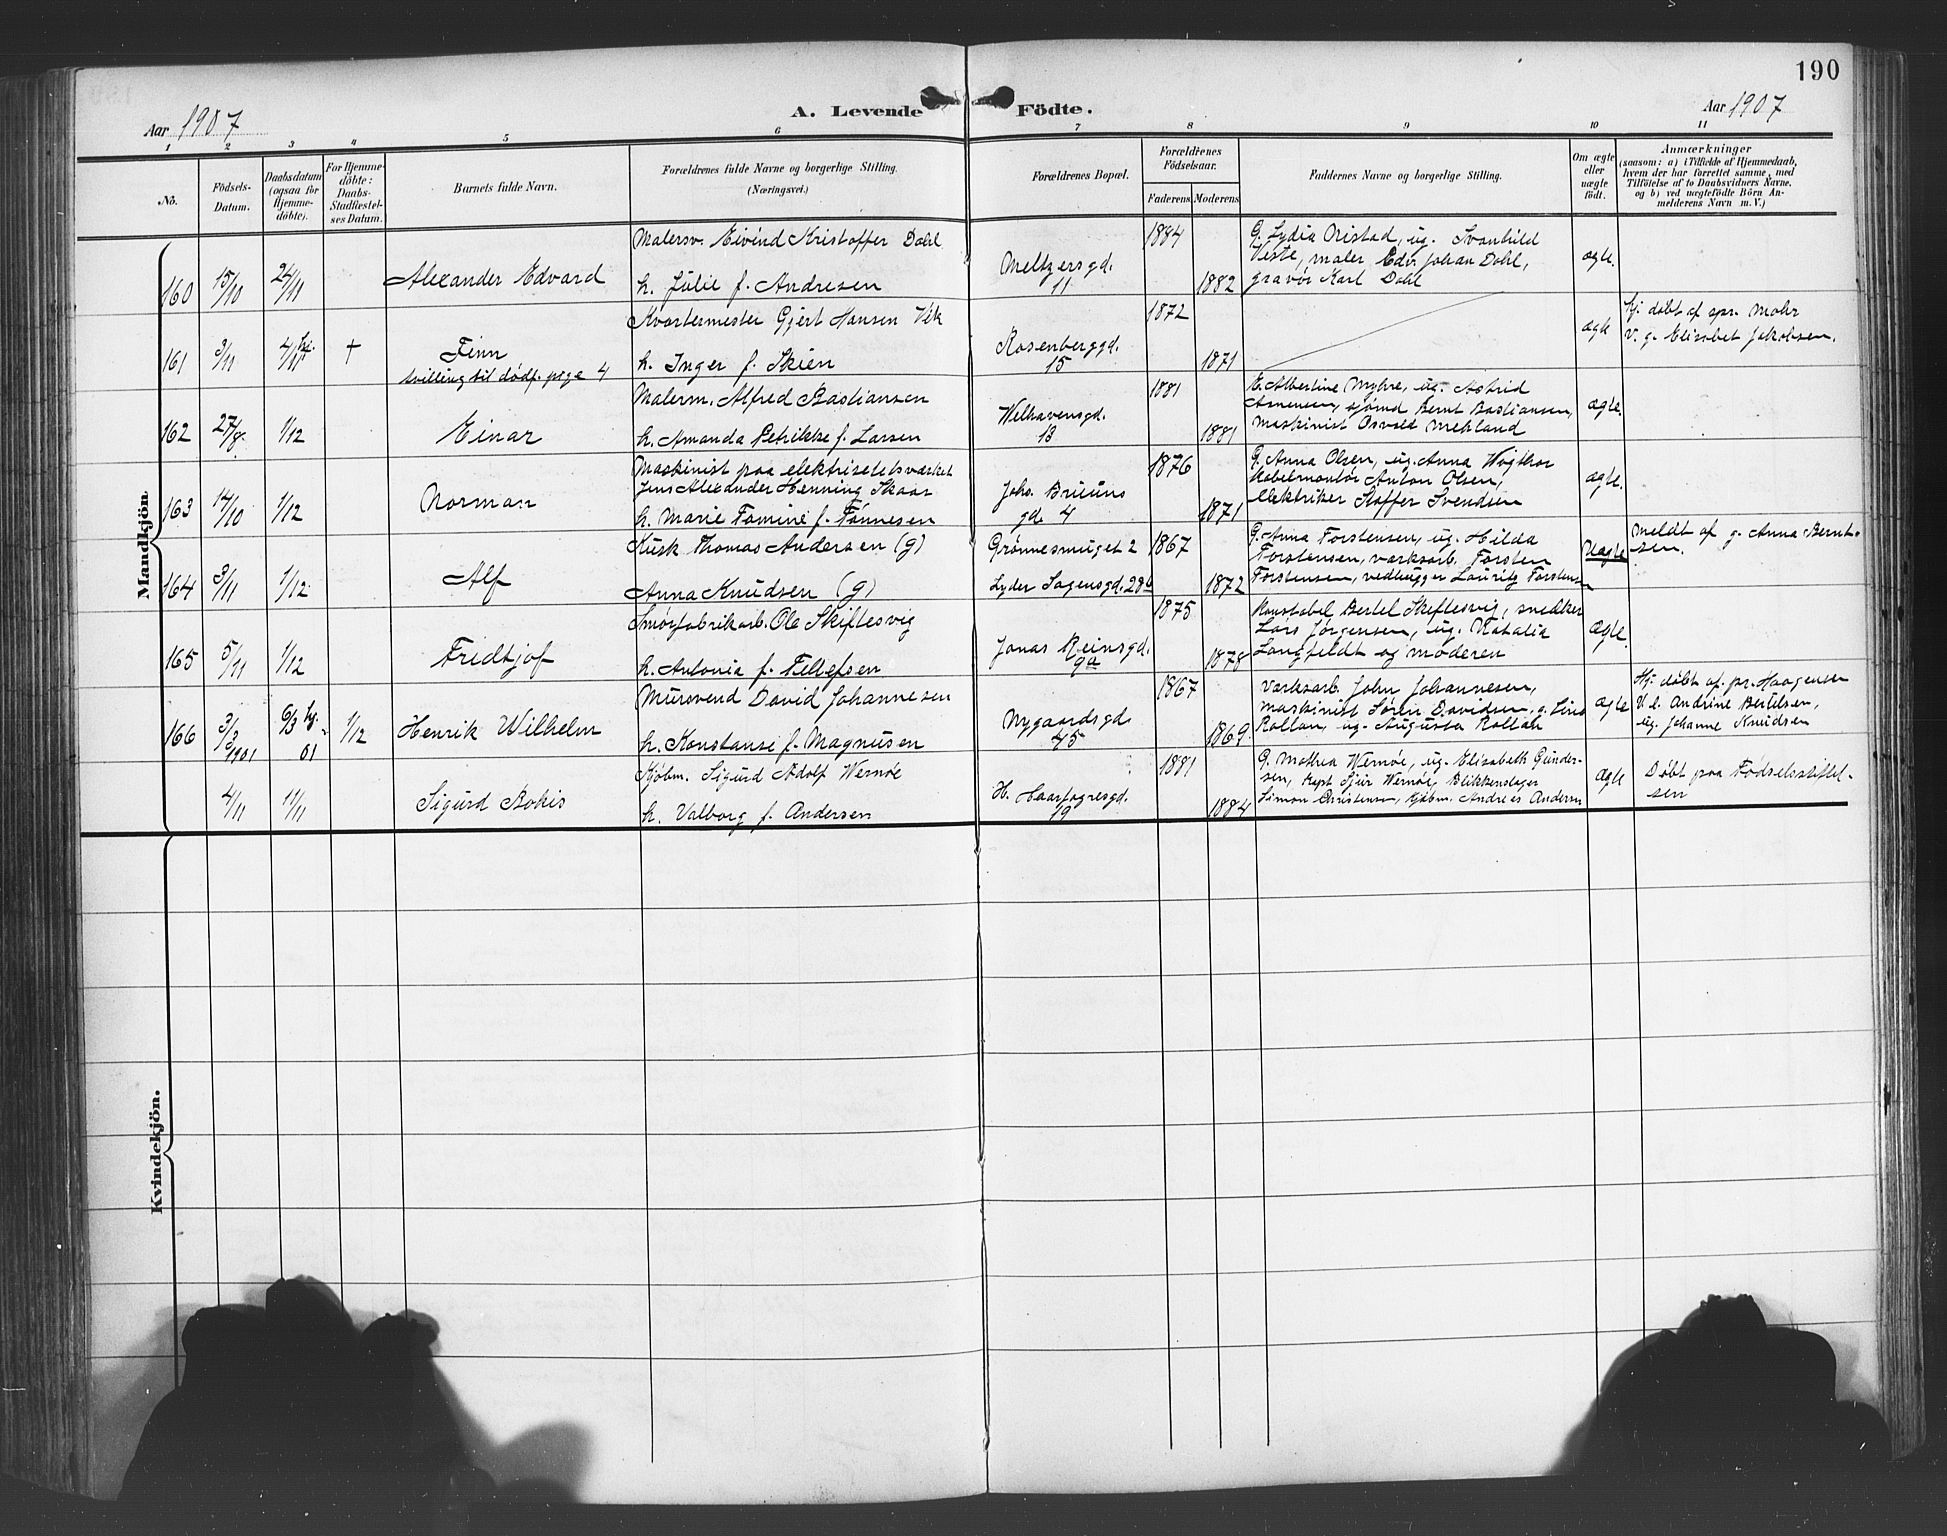 190
Aar 1907
A. Levende Födte.
Aar 1907
1 2 3 4 5 6 7 8 9 10 11
No.
Födsels-Datum.
Daabsdatum (ogsaa for Hjemme-döbte).
For Hjemme-döbte: Daabs-Stadfæstel-ses Datum.
Barnets fulde Navn.
Forældrenes fulde Navne og borgerlige Stilling.
(Næringsvei.)
Forældrenes Bopæl.
Forældrenes Födselsaar.
Faderens Moderens
Faddernes Navne og borgerlige Stilling.
Om ægte eller uægte födt.
Anmærkninger
(saasom: a) i Tilfælde af Hjemmedaab, hvem der har forrettet samme, med Tilföielse af to Daabsvidners Navne, og b) ved uægtefödte Börn An-melderens Navn m. V.)
Mandkjön.
160 15/10 24/11 Alexander Edvard
Malersv. Eivind Kristoffer Dahl
h. Julie f. Andresen
Meltzersgd. 11
1884 1882
G. Lydia Oristad, ug. Svanhild
Veste, maler Edv. Johan Dahl,
gravør Karl Dahl
ægte.
161 3/11 4/11 hj. † Finn
tvilling til dødf. pige 4
Kvartermester Gjert Hansen Vik
h. Inger f. Skien
Rosenberggd. 15
1872 1871
ægte
Hj. døbt af spr. Mohr
V. g. Elisabet Jakobsen.
162 27/8. 1/12 Einar
Malerm. Alfred Bastiansen
h. Amanda Petrikke f. Larsen
Welhavensgd. 13
1881 1881
E. Albertine Myhre, ug. Astrid
Asmensen, sjømd Bernt Bastiansen,
maskinist Osvald Mekland
ægte.
163 14/10 1/12 Norman
Maskinist paa elektrisetetsværket
Jens Alexander Henning Skaar
h. Marie Tomine f. Tønnesen
Johs. Bruuns gd. 4
1876 1871
G. Anna Olsen, ug. Anna
Kabelmontør Anton Olsen,
elektriker Stoffer Svendsen
ægte.
164 3/11 1/12 Alf
Kusk Thomas Andersen (g)
Anna Knudsen (g)
Grønnesmuget 2
Lyder Sagensgd. 28b
1867 1872
G. Anna Torstensen, ug. Hilda
Torstensen, værksarb. Torsten
Torstensen, vedhugger Lauritz Torstensen
Uægte
meldt af g. Anna Bernt-
sen.
165 5/11 1/12 Fridtjof
Smørfabrikarb. Ole Skiftesvig
h. Antonia f. Tellefsen
Jonas Reinsgd. 9a
1875 1878
Konstabel Bertel Skiftesvig, snedker
Lars Jørgensen, ug. Natalia
Langfeldt og moderen
ægte.
166 3/2 1901 6/3 hj. 01 1/12 Henrik Wilhelm
Mursvend David Johannesen
h. Konstanse f. Magnusen
Nygaardsgd. 45
1867 1869
Værksarb. John Johannesen,
maskinist Søren Davidsen, g. Lina
Rollan, ug. Augusta Rollan
ægte
Hj. døbt af. pr. Haagensen
V. e. Andrine Bertelsen,
ug. Johanne Knudsen
4/11 11/11 Sigurd Bokis
Kjøbm. Sigurd Adolf Wernøe
h. Valborg f. Andersen
H. Haarfagresgd. 19
1881 1884
G. Mathea Wernøe, ug. Elisabeth Gunder-
sen, Kept. Sjur Wernøe, Blikkenslager
Simon Christensen, Kjøbm. Andreas Andersen
ægte
Døbt paa Fødselsstiftel-
sen
Kvindekjön.